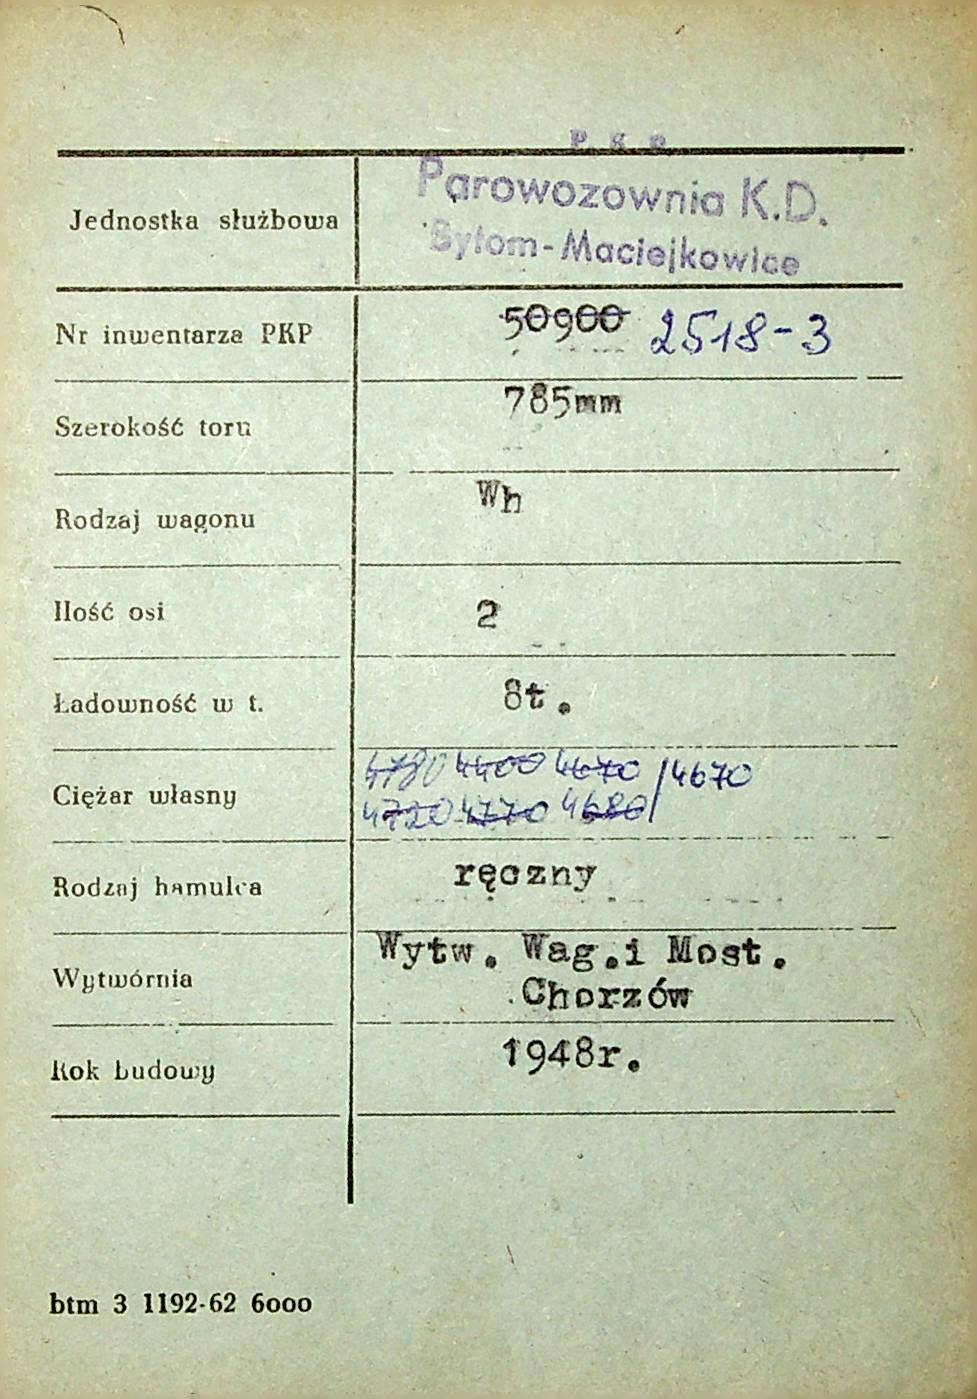 P. K. P.
Parowozownia K.D.
Jednostka służbowa
Bytom-Maciejkowice
Nr inwentarza PKP 50900 2518-3
Szerokość toru 785mm
Rodzaj wagonu Wh
Ilość osi 2
Ładowność w t. 8t.
4780 4400 4670 /4670
Ciężar własny
4720 4770 4680
Rodzaj hamulca ręczny
Wytw. Wag.i Most.
Wytwórnia
Chorzów
Rok budowy 1948r.
btm 3 1192-62 6000